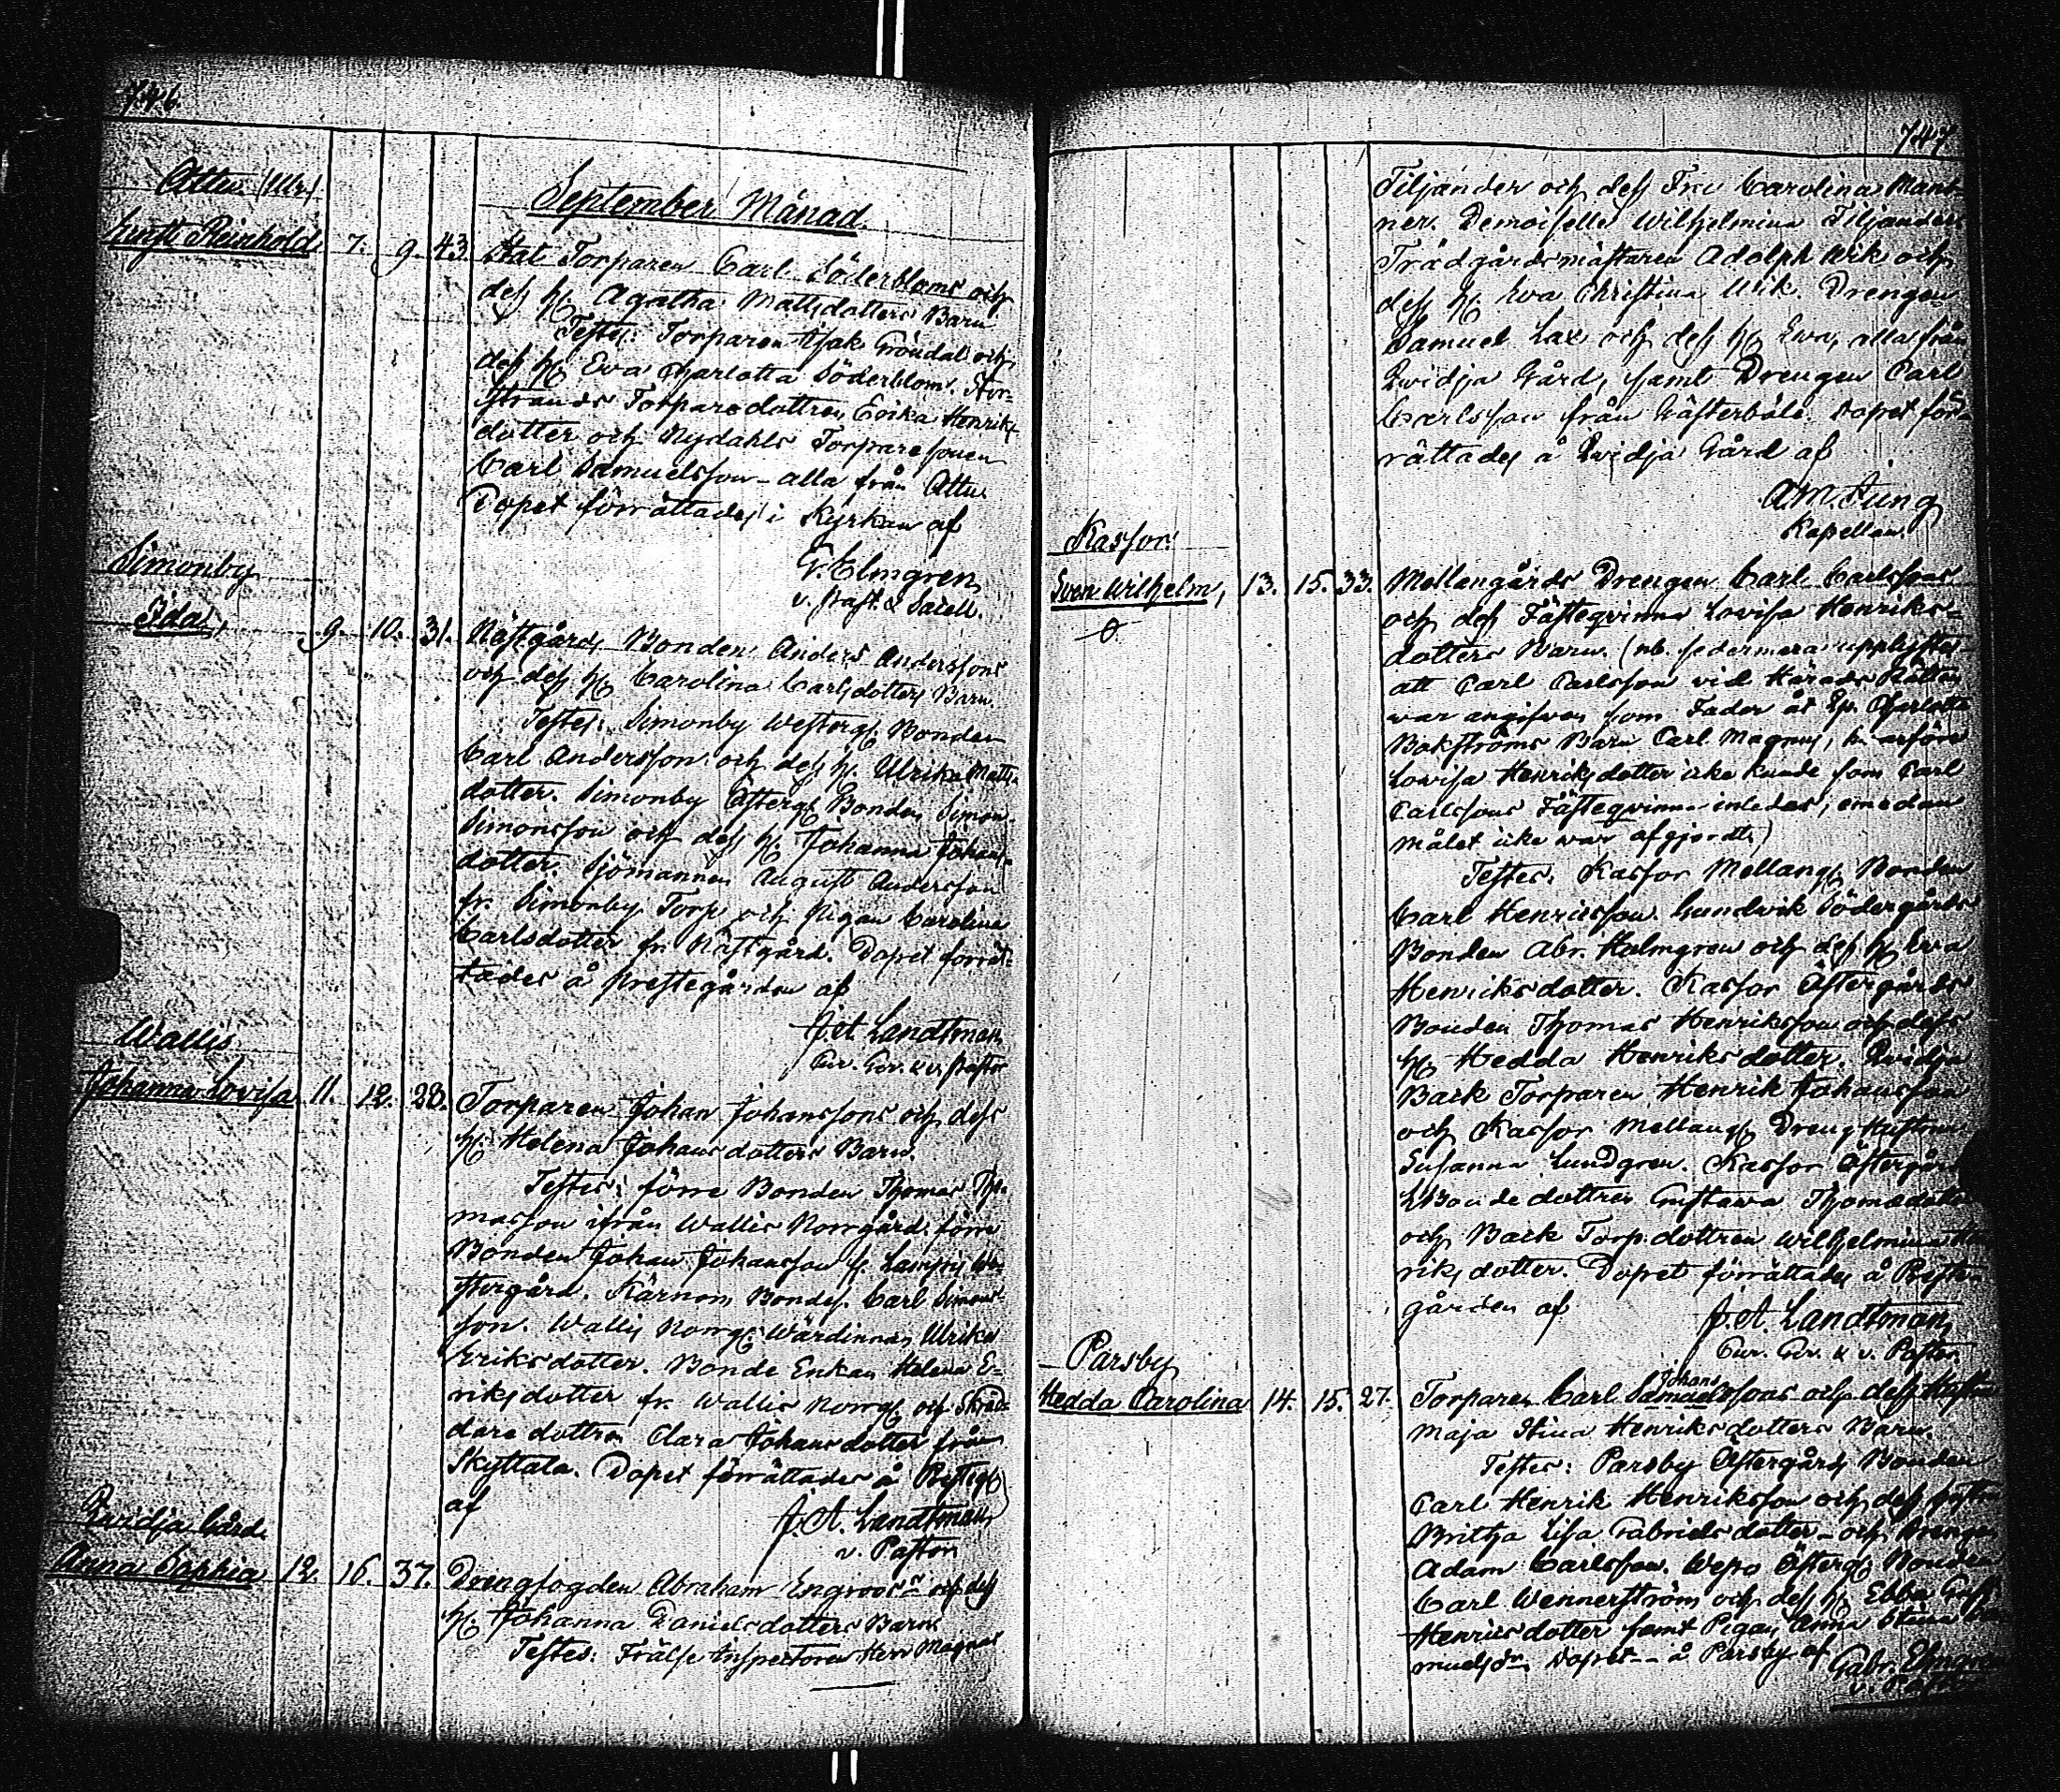 746.
Attu (Ulr.)
September Månad.
Ernst Reinhold 7. 9. 43. Stat Torparen Carl Söderbloms och
dess h. Agatha Mattsdotters Barn
Testes: Torparen Isak Gröndal och
dess h. Eva Charlotta Söderblom. Stor-
strands Torparedottren Erica Henriks-
dotter och Nydahls Torparesonen
Carl Samuelsson - alla från Attu
Dopet förrättades i Kyrkan af
G. Elmgren
v. past. & Sacell.
Simonby
Ida, 9. 10. 31. Nästgårds Bonden Anders Anderssons
och dess h. Carolina Carlsdotters Barn.
Testes: Simonby Westerg. Bonden
Carl Andersson och dess h. Ulrika Matts-
dotter. Simonby Österg. Bonden Simon
Simonsson och dess h. Johanna Johans-
dotter. Sjömannen August Andersson
fr. Simonby Torp och Pigan Carolina
Carlsdotter fr. Nästgård. Dopet förrät-
tades å Prestegården af
J. A. Landtman
Cur. Ger. & v. Pastor
Wallis
Johanna Lovisa 11. 12. 28. Torparen Johan Johanssons och dess
h. Helena Johansdotters Barn.
Testes: förre Bonden Thomas Tho-
masson ifrån Wallis Norrgård. förre
Bonden Johan Johansson fr. Lampis We-
stergård. Kärnom Bondes. Carl Simons-
son. Wallis Norrg. Wärdinnan Ulrika
Eriksdotter. Bonde Enkan Helena E-
riksdotter fr. Wallis Norrg. och Skräd-
dare dottren Clara Johansdotter från
Skyttala. Dopet förrättades å Presteg.
af
J. A. Landtman
v. Pastor
Qvidja Gård.
Anna Sophia 12. 16. 37. Drengfogden Abraham Engroos's och dess
h. Johanna Danielsdotters Barn
Testes: Frälse Inspectoren Herr Magnus
747
Tiljander och dess Fru Carolina Mant-
ner. Demoiselle Wilhelmina Tiljander
Trädgårdsmästaren Adolph Wik och
dess h. Eva Christina Wik. Drengen
Samuel Lax och dess h. Eva, alla från
Qvidja Gård, samt Drengen Carl
Carlsson från Gästerbåle. Dopet för-
rättades å Qvidja Gård af
A. M. Ljung
Kapellan.
Kassor.
Sven Wilhelm, 13. 15. 33. Mellangårds Drengen Carl Carlssons
och dess Fästeqvinna Lovisa Henriks-
dotters Barn. (nb. sedermera upplystes
att Carl Carlsson vid Härads Rätten
war angifwen som Fader åt Charlotta
Bokströms Barn Carl Magnus,
Lovisa Henriksdotter icke kunde som Carl
Carlssons Fästeqvinna inledas, emedan
målet icke war afgjordt.)
Testes: Kassor Mellang. Bonden
Carl Henricsson. Gundvik Södergårds
Bonden Abr. Holmgren och dess h. Eva
Henriksdotter. Kassor Östergårds
Bonden Thomas Henriksson och dess
h. Hedda Henriksdotter. Qvidja
Back Torparen Henrik Johansson
och Kassor Mellang. Dreng Hustrun
Susanna Lundgren. Kassor Östergårds
Bonde dottren Gustava Thomædotter
och Back Torp. dottren Wilhelmina Hen
riksdotter. Dopet förrättades å Preste-
gården af
J. A. Landtman
Cur. Ger. & v. Pastor.
Parsby
Hedda Carolina 14. 15. 27. Torparen Carl Samuelssons och dess Hustru
Johans
Maja Stina Henriksdotters Barn.
Testes: Parsby Östergårds Bonden
Carl Henrik Henriksson och dess hustru
Britha Lisa Gabrielsdotter - och Drengen
Adam Carlsson. Wepo Österg. Bonden
Carl Wennerström och dess h. Ebba Gust.
Henricsdotter samt Pigan Anna Stina Sa
muelsdr. Dopet - - å Parsby af Gabr. Elmgren
v. Pastor